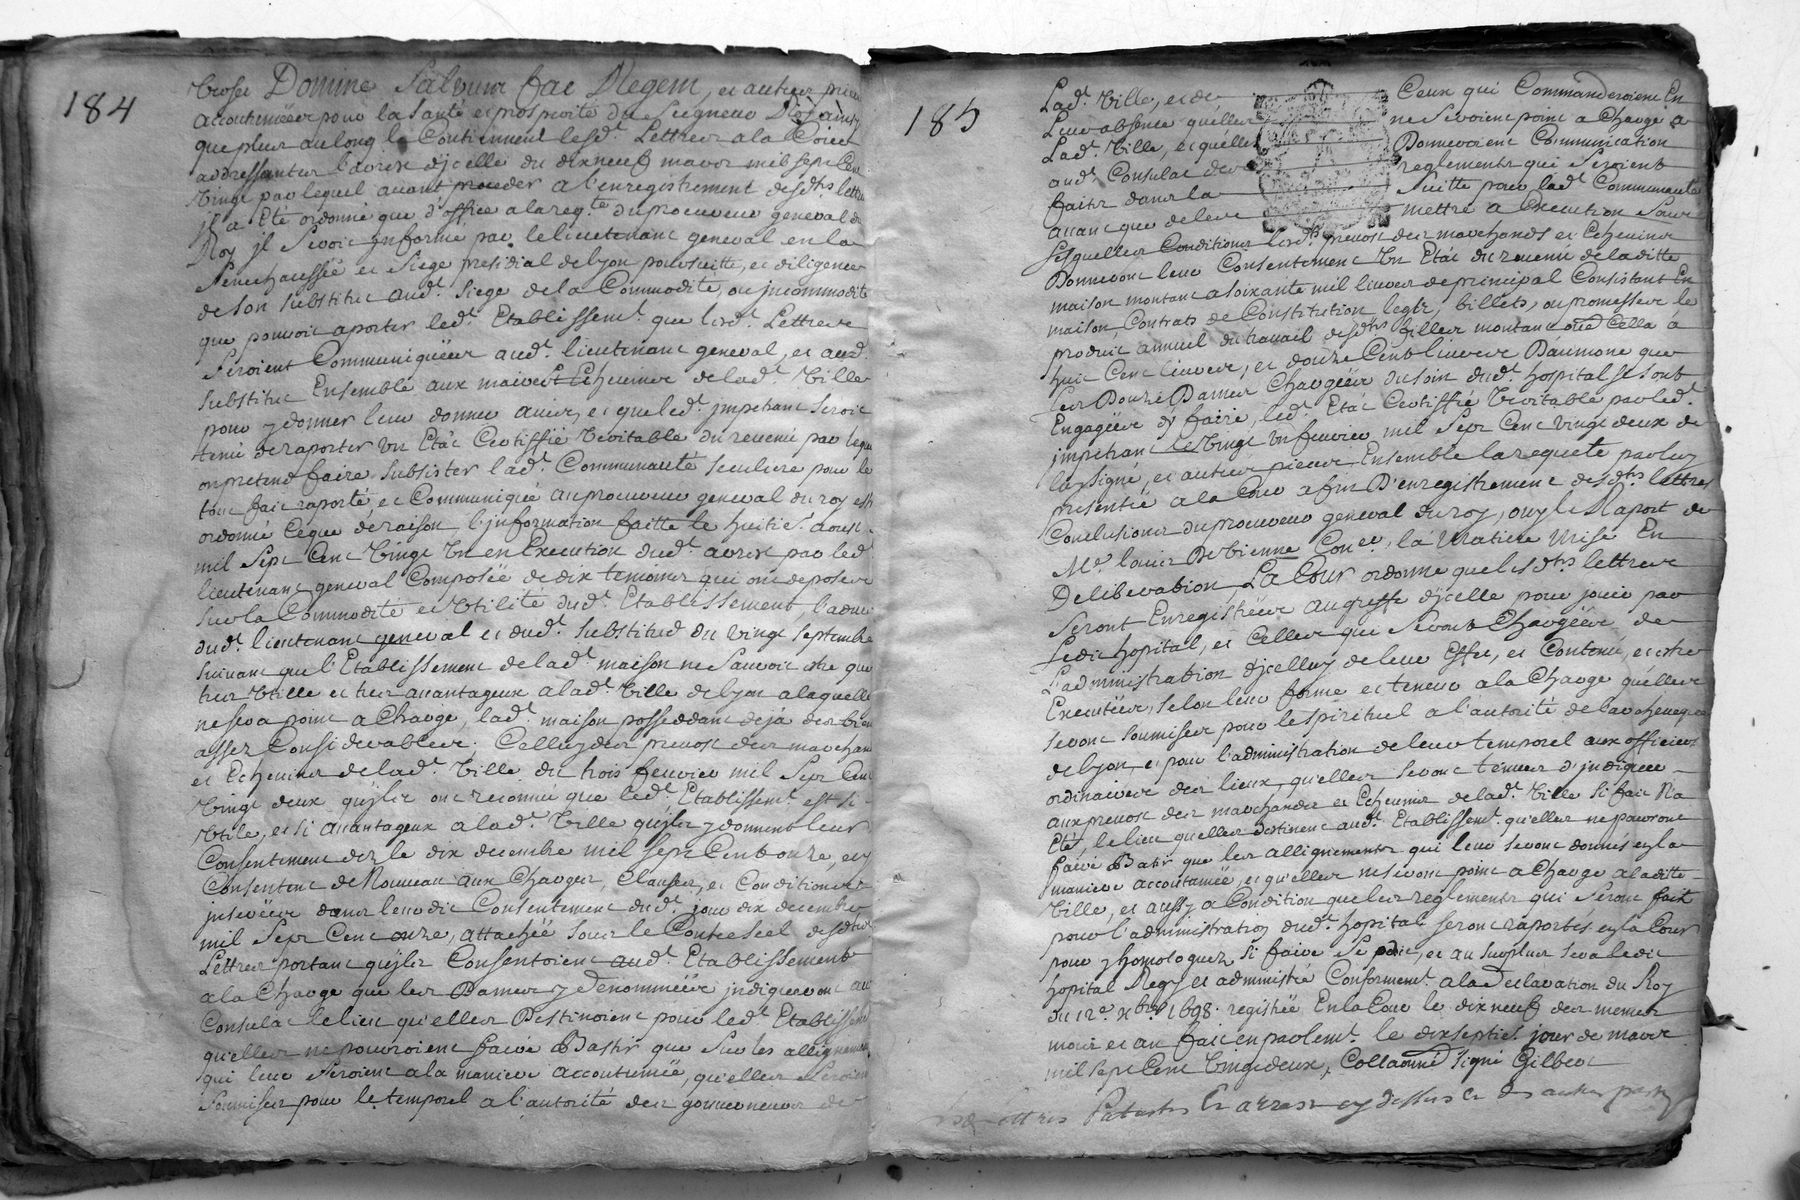 184
Domine Salvum fac Regem, et autres prieres
accoutumëes pour la santé et prosperité du Seigneur Roy ainsy
que plus au long le Contiennent lesd. Lettres a la Cour
addressantes l'arrest d'jcelle du dixneuf mars mil sept Cent
Vingt par lequel avant proceder a l'enregistrement desdts lettres
jl a Eté ordonné que d'office a la reqte du procureur general du
Roy jl Seroit jnformé par le lieutenant general en la
Senechaussée et Siege presidial de lyon poursuitte, et diligence
de son substitut aud. Siege de la Commodité, ou jncommodité
que pouvoit aporter led. Etablissemt. que lesd. Lettres
Seroient Communiquëes aud. lieutenant general, et aud.
substitut Ensemble aux maires et Echevins de lad. Ville
pour y donner leur avis, et que led. jmpetrant seroit
tenu de raporter un Etat Certiffié Veritable du revenu par lequel
on pretend faire subsister lad. Communauté seculiere pour le
tout fait raporté, et Communiqué au procureur general du roy estre
ordonné ce que de raison l'jnformation faitte le huitie. aoust
mil Sept Cent Vingt Un en Execution dud. arrest par led.
lieutenant general Composëe de dix temoins qui ont deposé
sur la Commodité et Utilité dud. Etablissement, l'avis
dud. lieutenant general et dud. substitud du vingt septembre
suivant que l'Etablissement de lad. maison ne Sauroit etre que
tres Utille et tres avantageux a lad. Ville de lyon a laquelle
ne sera point a Charge, lad. maison possedant deja des biens
assez Considerables. Celluy des prevost des marchans
et Echevins de lad. Ville du trois fevrier mil Sept Cent
Vingt deux qu'jls ont reconnu que led. Etablissemt. est si
Utile, et si avantageux a lad. Ville qu'jls y donnent leur
Consentement dez le dix decembre mil sept Cent onze, et y
Consentent de Nouveau aux Charges, Clauses, et Conditions
jnserëes dans leurdit Consentement dud. jour dix decembre
mil Sept Cent onze, attachée sous le Contrescel desdtes
Lettres portant qu'jls Consentoient aud. Etablissement
a la Charge que les Dames y denommëes jndiqueront au
Consulat le lieu qu'elles Destinoient pour led. Etablissement
qu'elles ne pourroient faire Bastir que sur les allignemens
qui leur seroient a la maniere accoutumée, qu'elles Seroient
soumises pour le temporel a l'autorité des gouverneurs de
185
Lad. Ville, et de Ceux qui Commanderoient En
Leur absence qu'elles ne Seroient point a Charge a
Lad. Ville, et qu'elles Donneroient Communication
aud. Consulat des reglements qui Seroient
faits dans la Suitte pour lad. Communauté
avant que de les mettre a Execution Sous
lesquelles Conditions lesdts prevost des marchands et Echevins
Donneront leur Consentement Un Etat du revenu de laditte
maison montant a soixante mil livres de principal Consistant En
maison, Contrats de Constitution legts, billets, ou promesses le
produit annuel du travail desdts filles montant à
huit Cent livres, et douze Cent livres D'aumone que
les Douze Dames Chargëes du soin dud. hospital se sont
Engagëes d'y faire, led. Etat Certiffié Veritable par led.
jmpetrant le Vingt Un fevrier mil Sept Cent vingt deux de
luy signé, et autres pieces Ensemble la requete par luy
presentée a la Cour a fin D'enregistrement desdts lettres
Conclusions du procureur general du roy, ouy le Raport de
Me louis De Vienne Coner, la Matiere Mise En
Deliberation La Cour ordonne que lesdts lettres
Seront Enregistrëes au greffe d'jcelle pour jouir par
Ledit hopital, et Celles qui Seront Chargëes de
l'administration d'jcelluy de leur Effet, et Contenu, et estre
Executëes, selon leur forme et teneur a la Charge qu'elles
seront soumises pour le spirituel a l'autorité de l'archeveque
de lyon, et pour l'administration de leur temporel aux officiers
ordinaires des lieux, qu'elles seront tenues d'jndiquer
aux prevost des marchands et Echevins de lad. Ville si fait N'a
Eté, le lieu qu'elles destinent aud. Etablissemt. qu'elles ne pourront
faire Batir que les allignements qui leur seront donnés en la
maniere accoutumée, et qu'elles ne seront point a Charge a laditte
Ville, et aussy a Condition que les reglements qui Seront fait
pour l'administration dud. hopital seront raportés en la Cour
pour y homologuer si faire se doit, et au surplus sera ledit
hopital Regy et administré Conformemt. a la declaration du Roy
du 12e Xbre 1698. registrée En la Cour le dixneuf des memes
mois et an fait en parlemt. le dixseptie. jour de mars
mil sept Cent Vingt deux, Collationné Signé Gilbert
Patentes Et arrest cy dessus